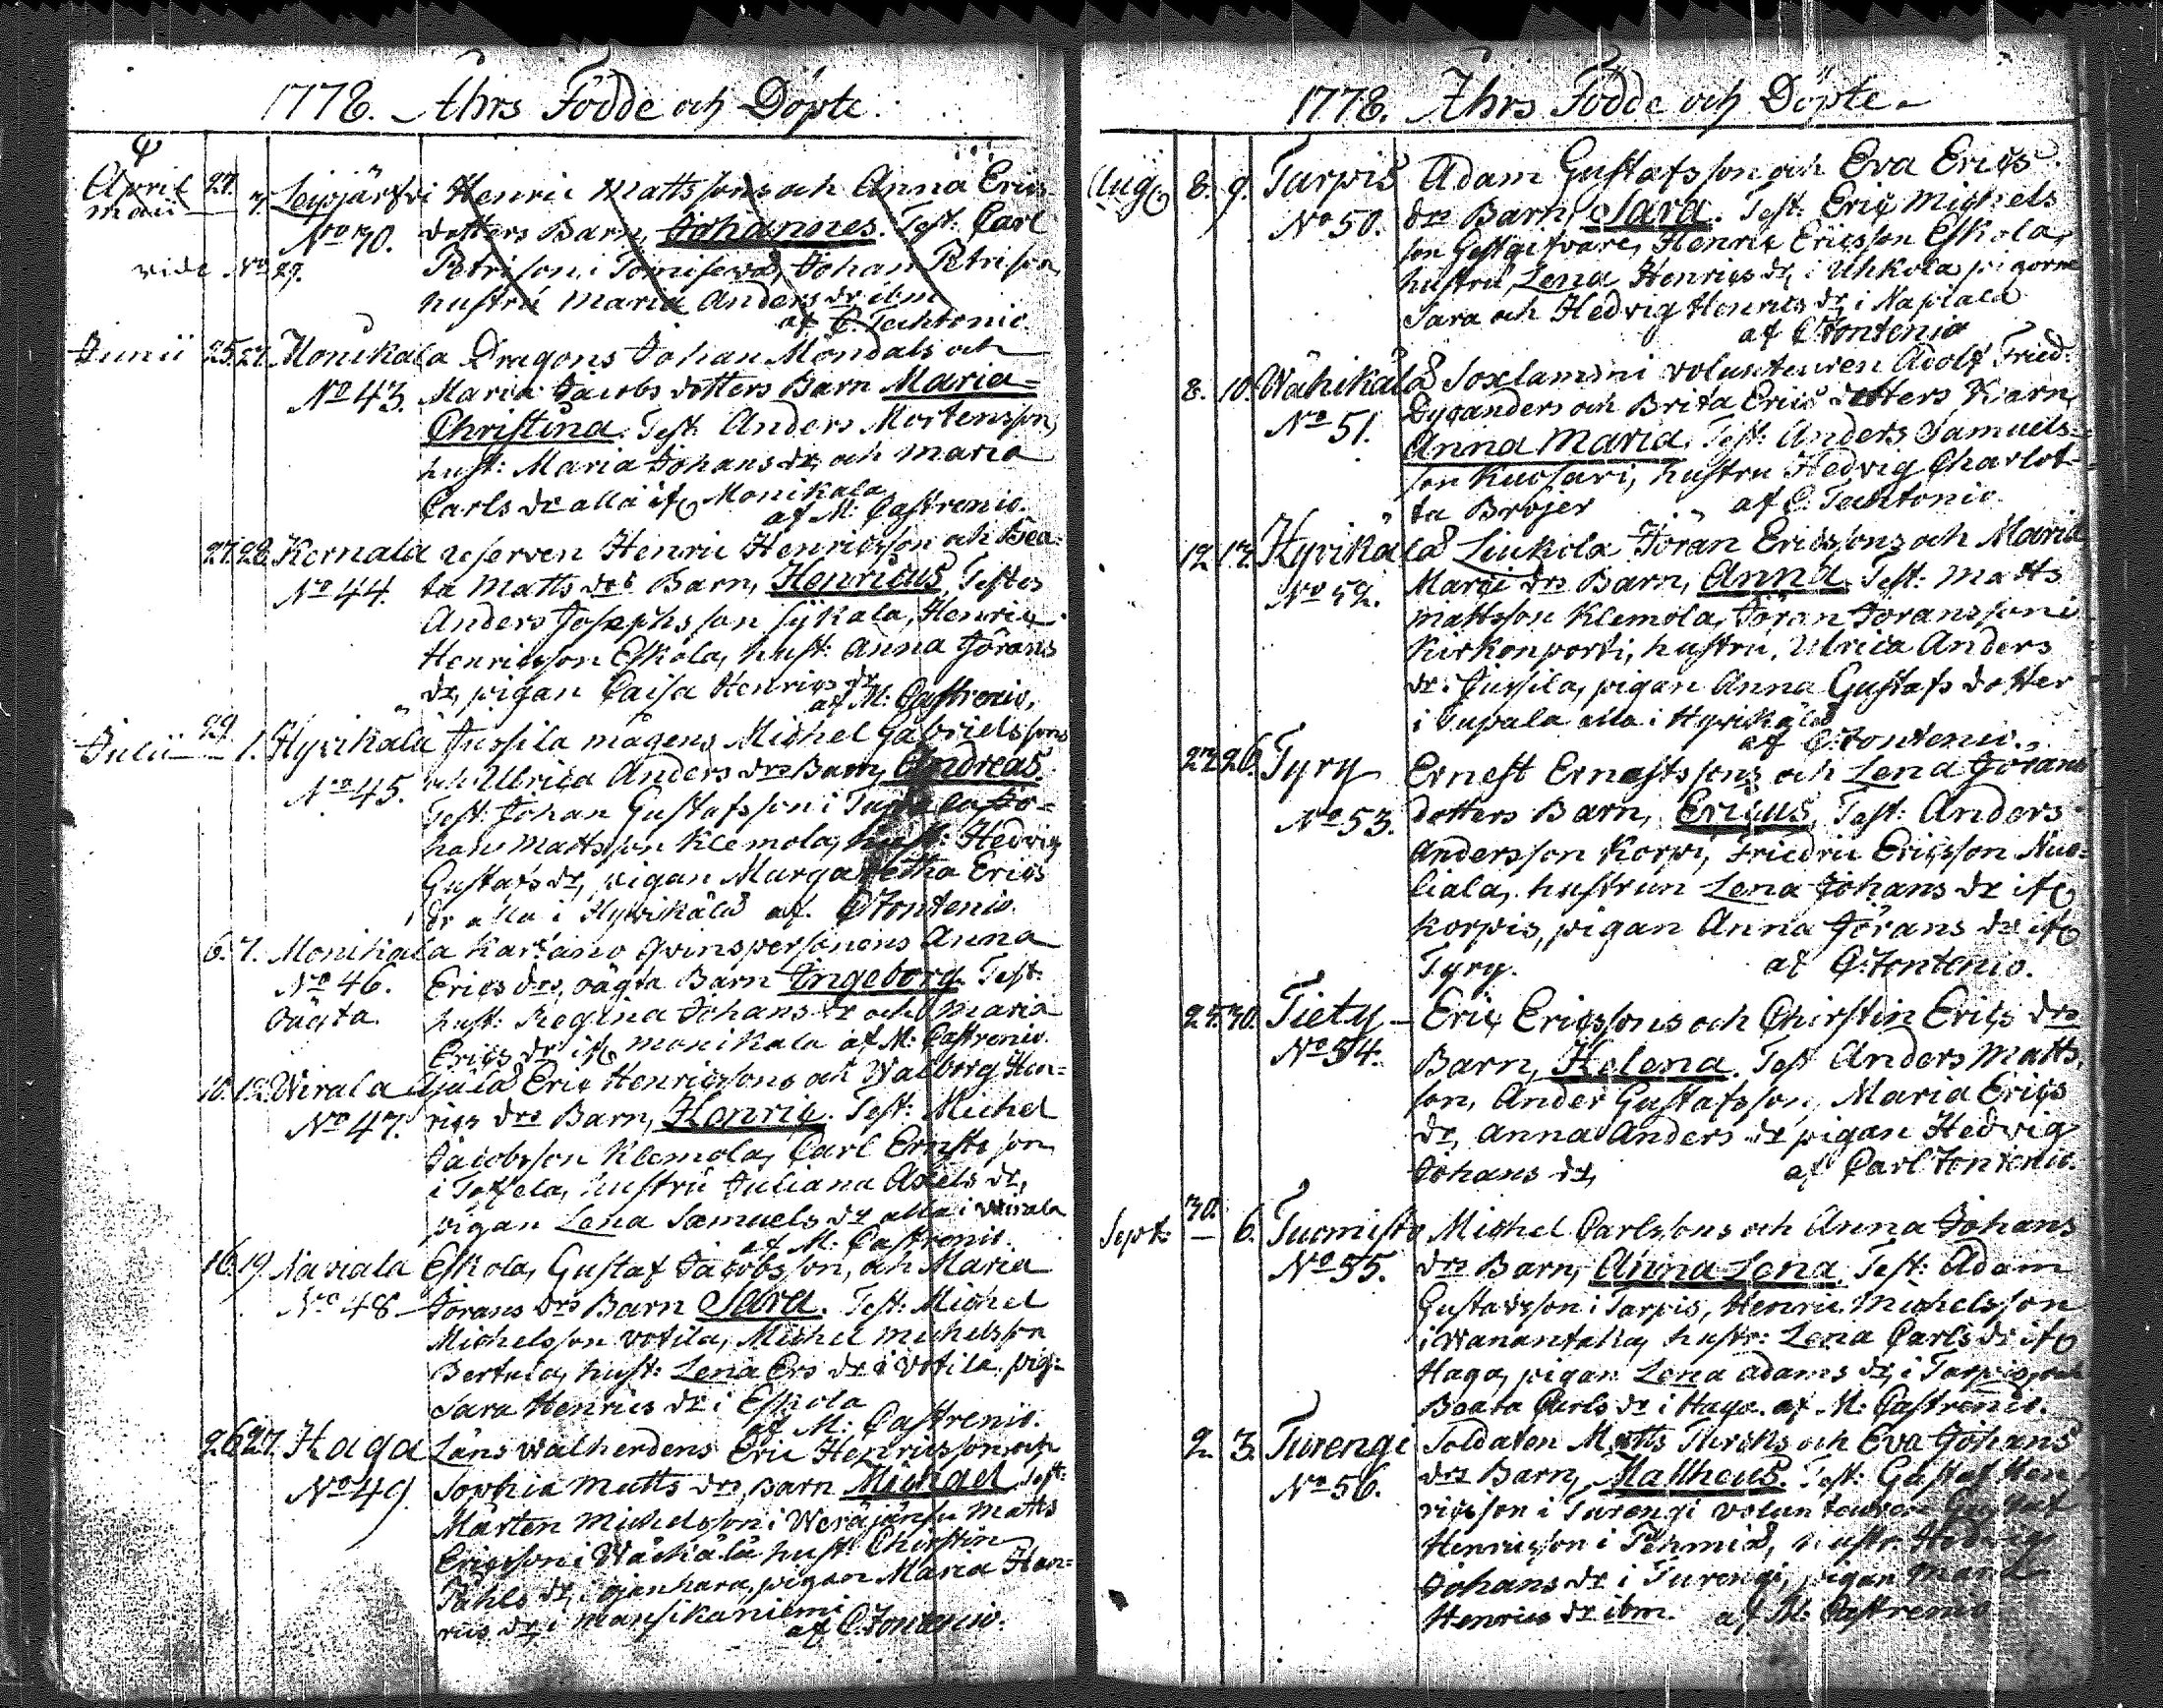 1778. Åhrs Födde och Döpte.
April 27. Leppjärfvi Henric Mattssons och Anna Erics
maii 3. No 30. dotters Barn, Johannes. Test: Carl
vide No 29. Petrison i Tomisewa, Johan Petrison,
hustru Maria Anders dr ibm
af C. Techtonio.
Junii 25. 27. Monikala Dragons Johan Möndals och
No 43. Maria Jacobs dotters Barn Maria=
Christina. Test: Anders Mortensson,
hust: Maria Johans dr, och Maria
Carls dr alla if Monikala
af M: Castrenio.
27. 28. Kernala reserven Henric Henricsson och Bea=
No 44. ta Matts drs Barn, Henricus, Testes
Anders Josephsson Sykala, Henric
Henricsson Eskola, hust: Anna Görans
dr, pigan Caisa Henrics dr
af M: Castrenio.
29.
Julii 1. Hyvikälä Jussila mågens Michel Gabrielssons
No 45. och Ulrica Anders drs Barn, Andreas.
Test: Johan Gustafsson i Jo=
han Mattsson Klemola, hust: Hedvig
Gustafs dr, pigan Margaretha Erics
dr alla i Hyvikälä af. C: Fontenio.
6. 7. Monikala Kartano qvinspersonens Anna
No 46. Erics drs, oägta Barn Ingeborg. Test:
Oägta. hust: Regina Johans dr och Maria
Erics dr if Monikala af M: Castrenio.
10. 12. Wirala Eric Henricssons och Walborg Hen=
No 47. rics drs Barn, Henric. Test: Michel
Jacobsson Klemola, Carl Ernstsson
i hustru Juliana Axels dr,
pigan Lena Samuels dr alla i Wirala
af M: Castrenio.
16. 19. Napiala Eskola, Gustaf Jacobsson, och Maria
No 48 Jörans drs Barn Sara. Test: Michel
Michelsson Votila, Michel Michelsson
Bertula, hust: Lena Ers dr i Votila, pig:
Sara Henrics dr i Eskola
af M: Castrenio.
26. 27. Haga Läns Walherdens Eric Henricsson och
No 49. Sophia Matts drs, Barn Michael. Test:
Mårten Michelsson i Matts
Ericsson i Wäehälä, hust: Chirstin
Påhls dr, i pigan Maria Hen=
rics dr, i Mansikaniemi
af C: Fontenio.
1778. Åhrs Födde och Döpte.
Aug 8. 9. Turpis Adam Gustafsson och Eva Erics
No 50. drs Barn, Sara. Test: Eric Michels
son Gestgifvare, Henric Ericsson Eskola,
hustru, Lena Henrics dr, i Uhkola, pigorne
Sara och Hedvig Henrics dr, i Napiala
af C: Fontenio
8. 10. Wähikälä Soxlammi volunteuren Adolf Fried:
No 51. Dyganders och Brita Erics dotters Barn,
Anna Maria. Test: Anders Samuels=
son Kuusari, hustru Hedvig Charlot=
ta Bröjer af C. Techtonio.
12. 17. Hyvikälä Liukola Jöran Ericssons och Maria
No 52. Marci drs Barn, Anna. Test: Matts
Mattsson Klemola, Jöran Joransson i
Kirkonporti, hustru, Ulrica Anders
dr. Jussila, pigan Anna Gustafs dotter
i Tupala alla i Hyvikälä
af C: Fontenio.
22. 26. Tyry Ernest Ernestssons och Lena Görans
No 53. dotters Barn, Ericus, Test: Anders
Andersson Korpi, Friedric Ericsson Nuo=
liala, hustrun Lena Johans dr if
Korpis, pigan Anna Jörans dr if
Tyry. af C: Fontenio.
24. 30. Tiety Eric Ericssons och Chirstin Erics drs
No 54. Barn, Helena. Test Anders Matts
son, Ander Gustafsson, Maria Erics
dr, Anna Anders dr pigan Hedvig
Johans dr, af Carl Fontenio.
30.
Sept: 6. Tuomisto Michel Carlssons och Anna Johans
No 55. drs Barn, Anna Lena. Test: Adam
Gustavsson i Tarpis, Henric Michelsson
i Wanantaka, hustr: Lena Carls dr if
Haga, pigan Lena Adams dr, i Tarpis, och
Beata Carls dr i Haga. af M: Castrenio.
2. 3. Turengi Soldaten Matts Thriks och Eva Johans
No 56. drs Barn, Mattheus. Test: Gustaf Hen
ricsson i Turengi volunteuren Gustaf
Henricsson i hustr: Hedvig
Johans dr i Turengi, pigan Maria
Henrics dr ibm. af M: Castrenio